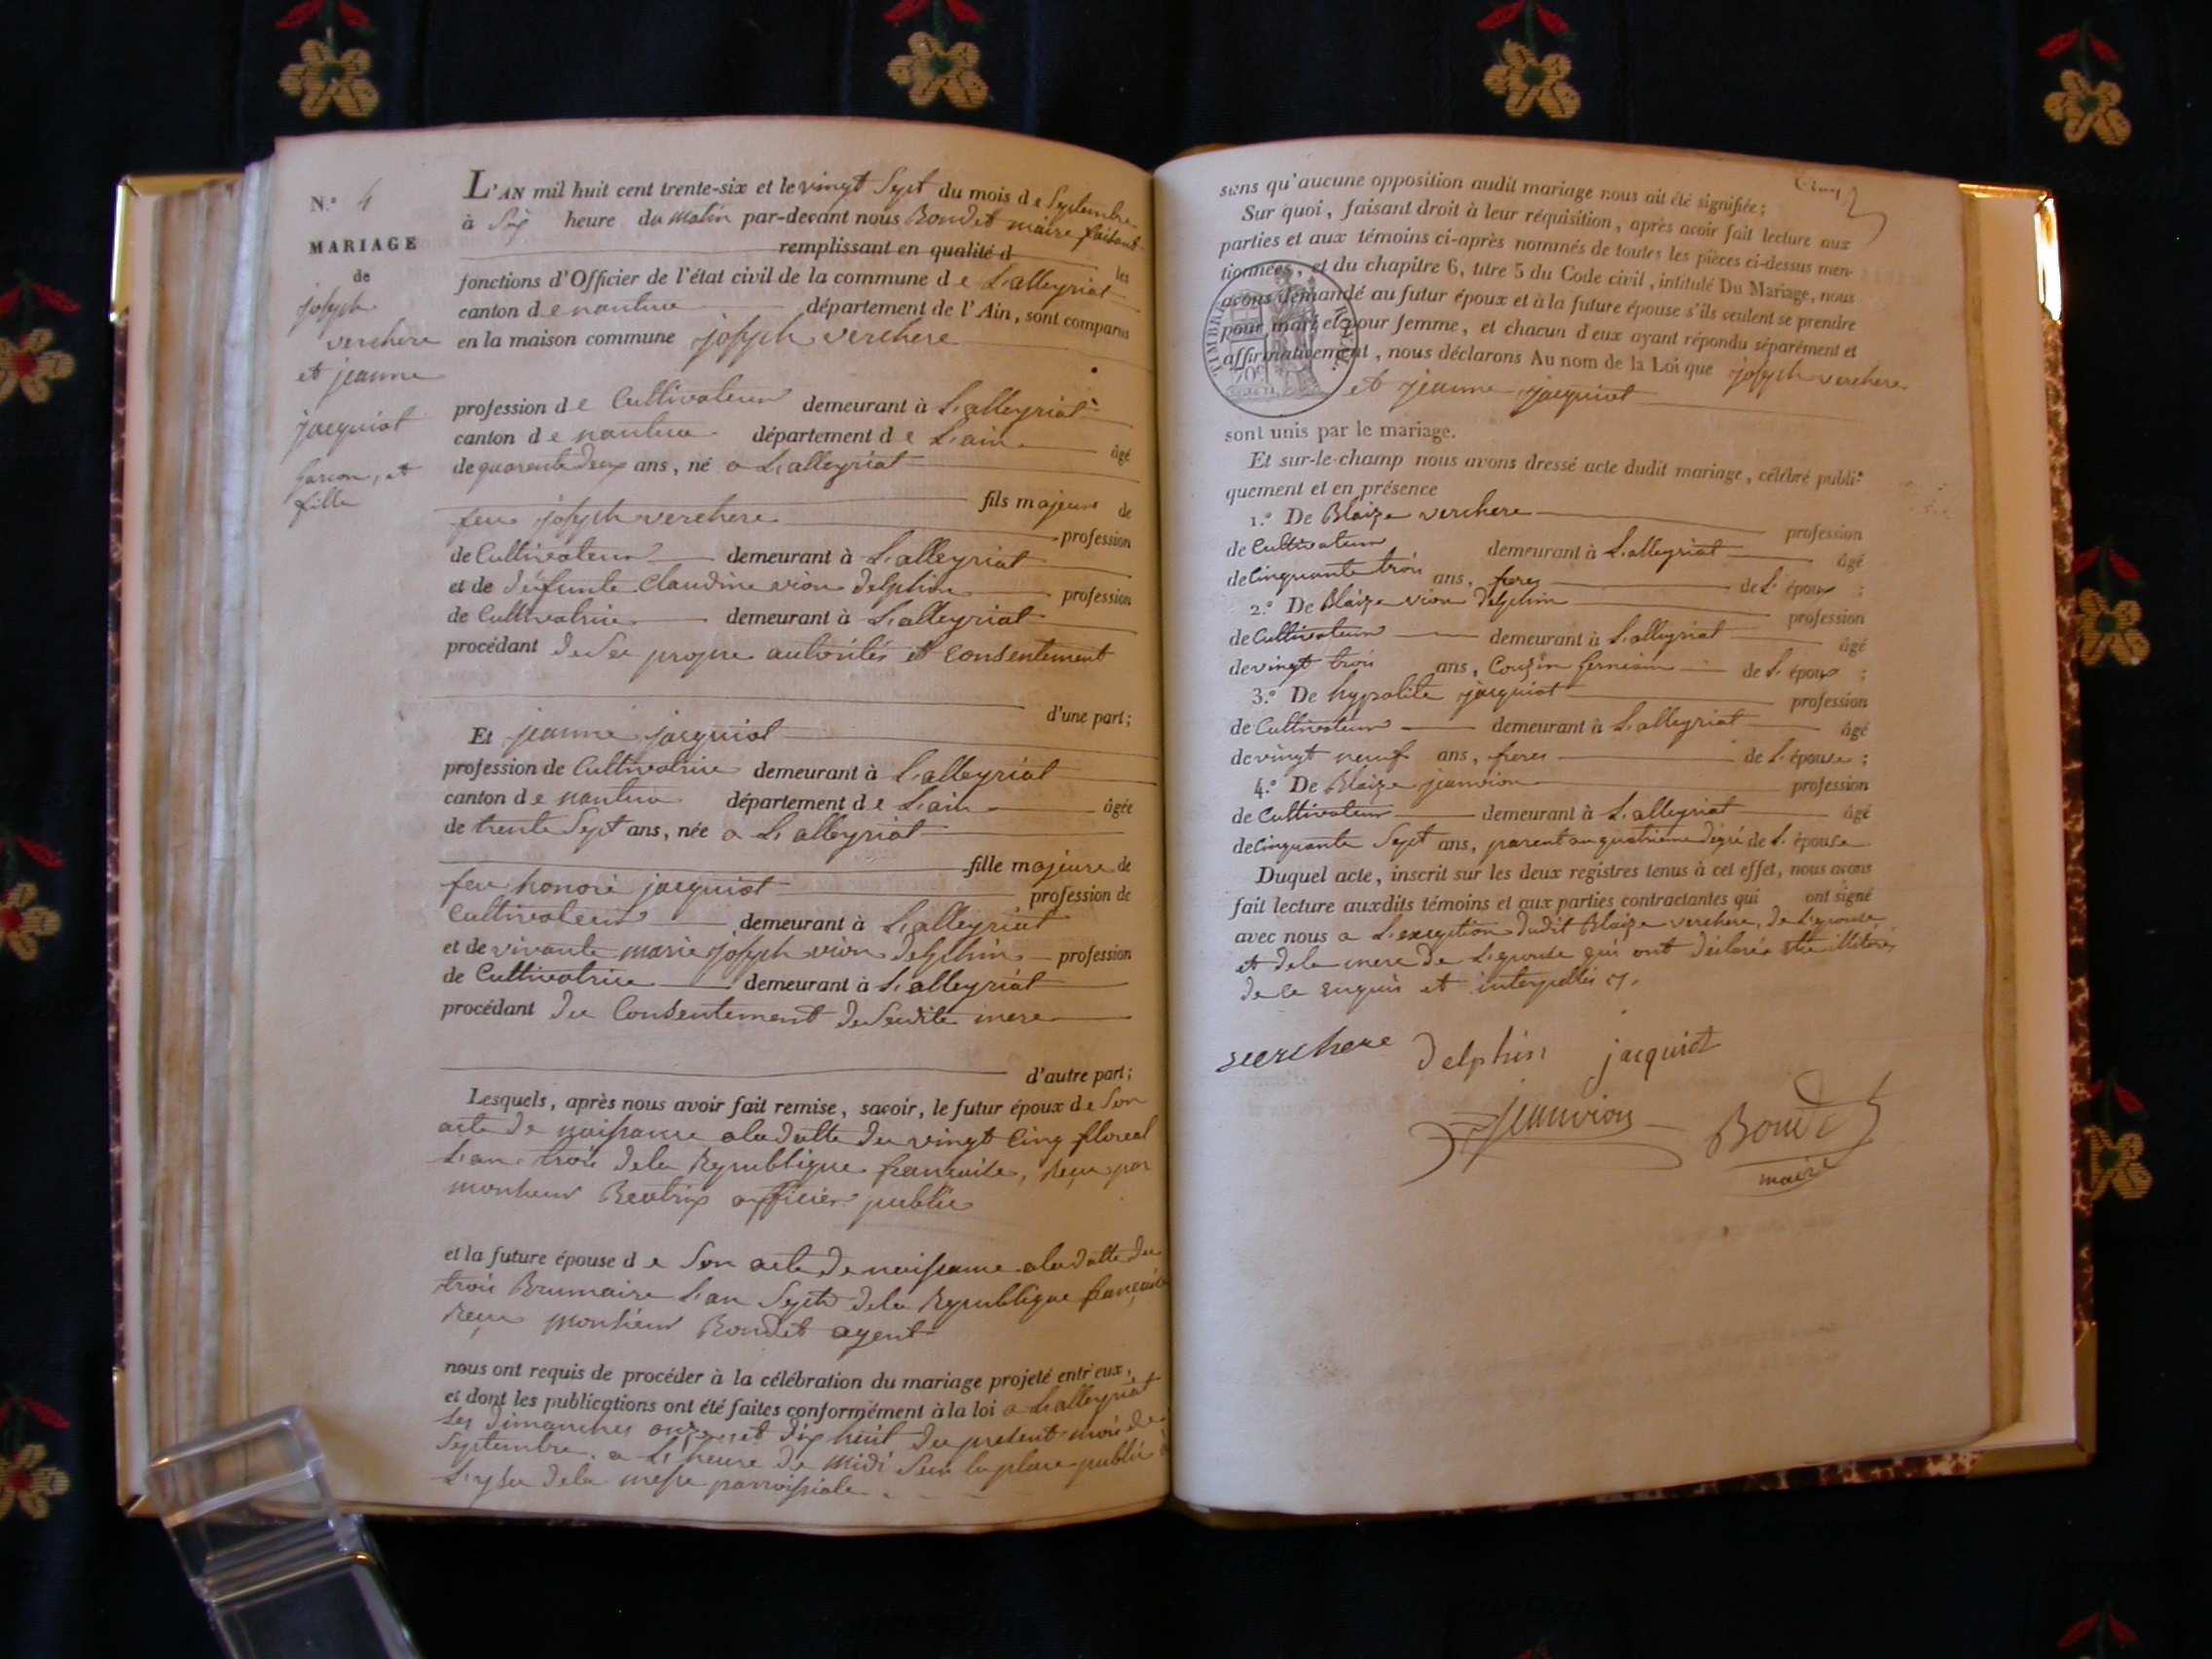 N.º 4
MARIAGE
de
joseph
verchere
et jeanne
jacquiot
garcon, et
fille
L'AN mil huit cent trente-six et le vingt Sept du mois de Septembre
à Six heure du matin par-devant nous Bondet maire faisant
remplissant en qualité d les
fonctions d'Officier de l'état civil de la commune de L'alleyriat
canton de nantua département de l'Ain, sont comparus
en la maison commune joseph verchere
profession de Cultivateur demeurant à L'alleyriat
canton de nantua département de L'ain âgé
de quarente deux ans, né a L'alleyriat
fils majeur de
feu joseph verchere profession
de Cultivateur demeurant à L'alleyriat
et de défunte Claudine vion delphin profession
de Cultivatrice demeurant à L'alleyriat
procédant de Sa propre autorités et consentement
d'une part;
Et jeanne jacquiot
profession de Cultivatrice demeurant à L'alleyriat
canton de nantua département de L'ain âgée
de trente Sept ans, née a L'alleyriat
fille majeure de
feu honoré jacquiot profession de
Cultivateur demeurant à L'alleyriat
et de vivante marie joseph vion delphin profession
de Cultivatrice demeurant à L'alleyriat
procédant du Consentement de Sadite mere
d'autre part;
Lesquels, après nous avoir fait remise, savoir, le futur époux de Son
acte de naissance a la datte du vingt Cinq floreal
L'an trois de la Republique francaise, Reçu par
monsieur Beatrix officier public
et la future épouse de Son acte de naissance a la datte du
trois Brumaire L'an Sept de la Republique francaise
Reçu monsieur Bondet agent
nous ont requis de procéder à la célébration du mariage projeté entr'eux,
et dont les publications ont été faites conformément à la loi a L'alleyriat
Les dimanches onze et dix huit du present mois de
Septembre a L'heure de midi Sur la place public à
L'issu de la messe parroissiale
Cinq
sans qu'aucune opposition audit mariage nous ait été signifiée;
Sur quoi, faisant droit à leur réquisition, après avoir fait lecture aux
parties et aux témoins ci-après nommés de toutes les pièces ci-dessus men-
tionnées, et du chapitre 6, titre 5 du Code civil, intitulé Du Mariage, nous
avons demandé au futur époux et à la future épouse s'ils veulent se prendre
pour mari et pour femme, et chacun d'eux ayant répondu séparément et
affirmativement, nous déclarons Au nom de la Loi que joseph verchere
et jeanne jacquiot
TIMBRE ROYAL
70c
sont unis par le mariage.
Et sur-le-champ nous avons dressé acte dudit mariage, célébré publi-
quement et en présence
1.º De Blaize verchere profession
de Cultivateur demeurant à L'alleyriat âgé
de Cinquante trois ans, freres de L'époux ;
2.º De Blaize vion delphin profession
de Cultivateur demeurant à L'alleyriat âgé
de vingt trois ans, Couzin Germain de L'époux ;
3.º De hypolite jacquiot profession
de Cultivateur demeurant à L'alleyriat âgé
de vingt neuf ans, freres de L'épouse ;
4.º De Blaize jeanvion profession
de Cultivateur demeurant à L'alleyriat âgé
de Cinquante Sept ans, parent au quatrieme degré de L'épouse
Duquel acte, inscrit sur les deux registres tenus à cet effet, nous avons
fait lecture auxdits témoins et aux parties contractantes qui ont signé
avec nous a L'exception dudit Blaize verchere, de L'epouse
et de la mere de L'epouse qui ont déclarés etre illiterés
de ce enquis et interpellés
verchere delphin jacquiot
jeanvion Bondet
maire